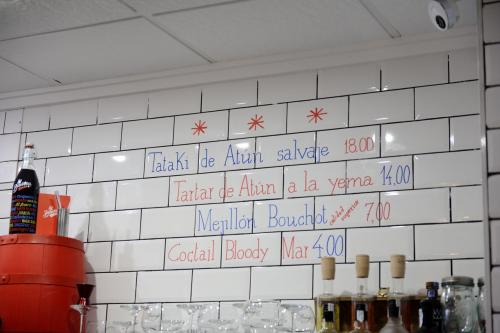 * * *
Tataki de Atún salvaje 18.00
Tartar de Atún a la yema 14,00
Mejillón Bouchot calidad suprema 7,00
Coctail Bloody Mar 4,00